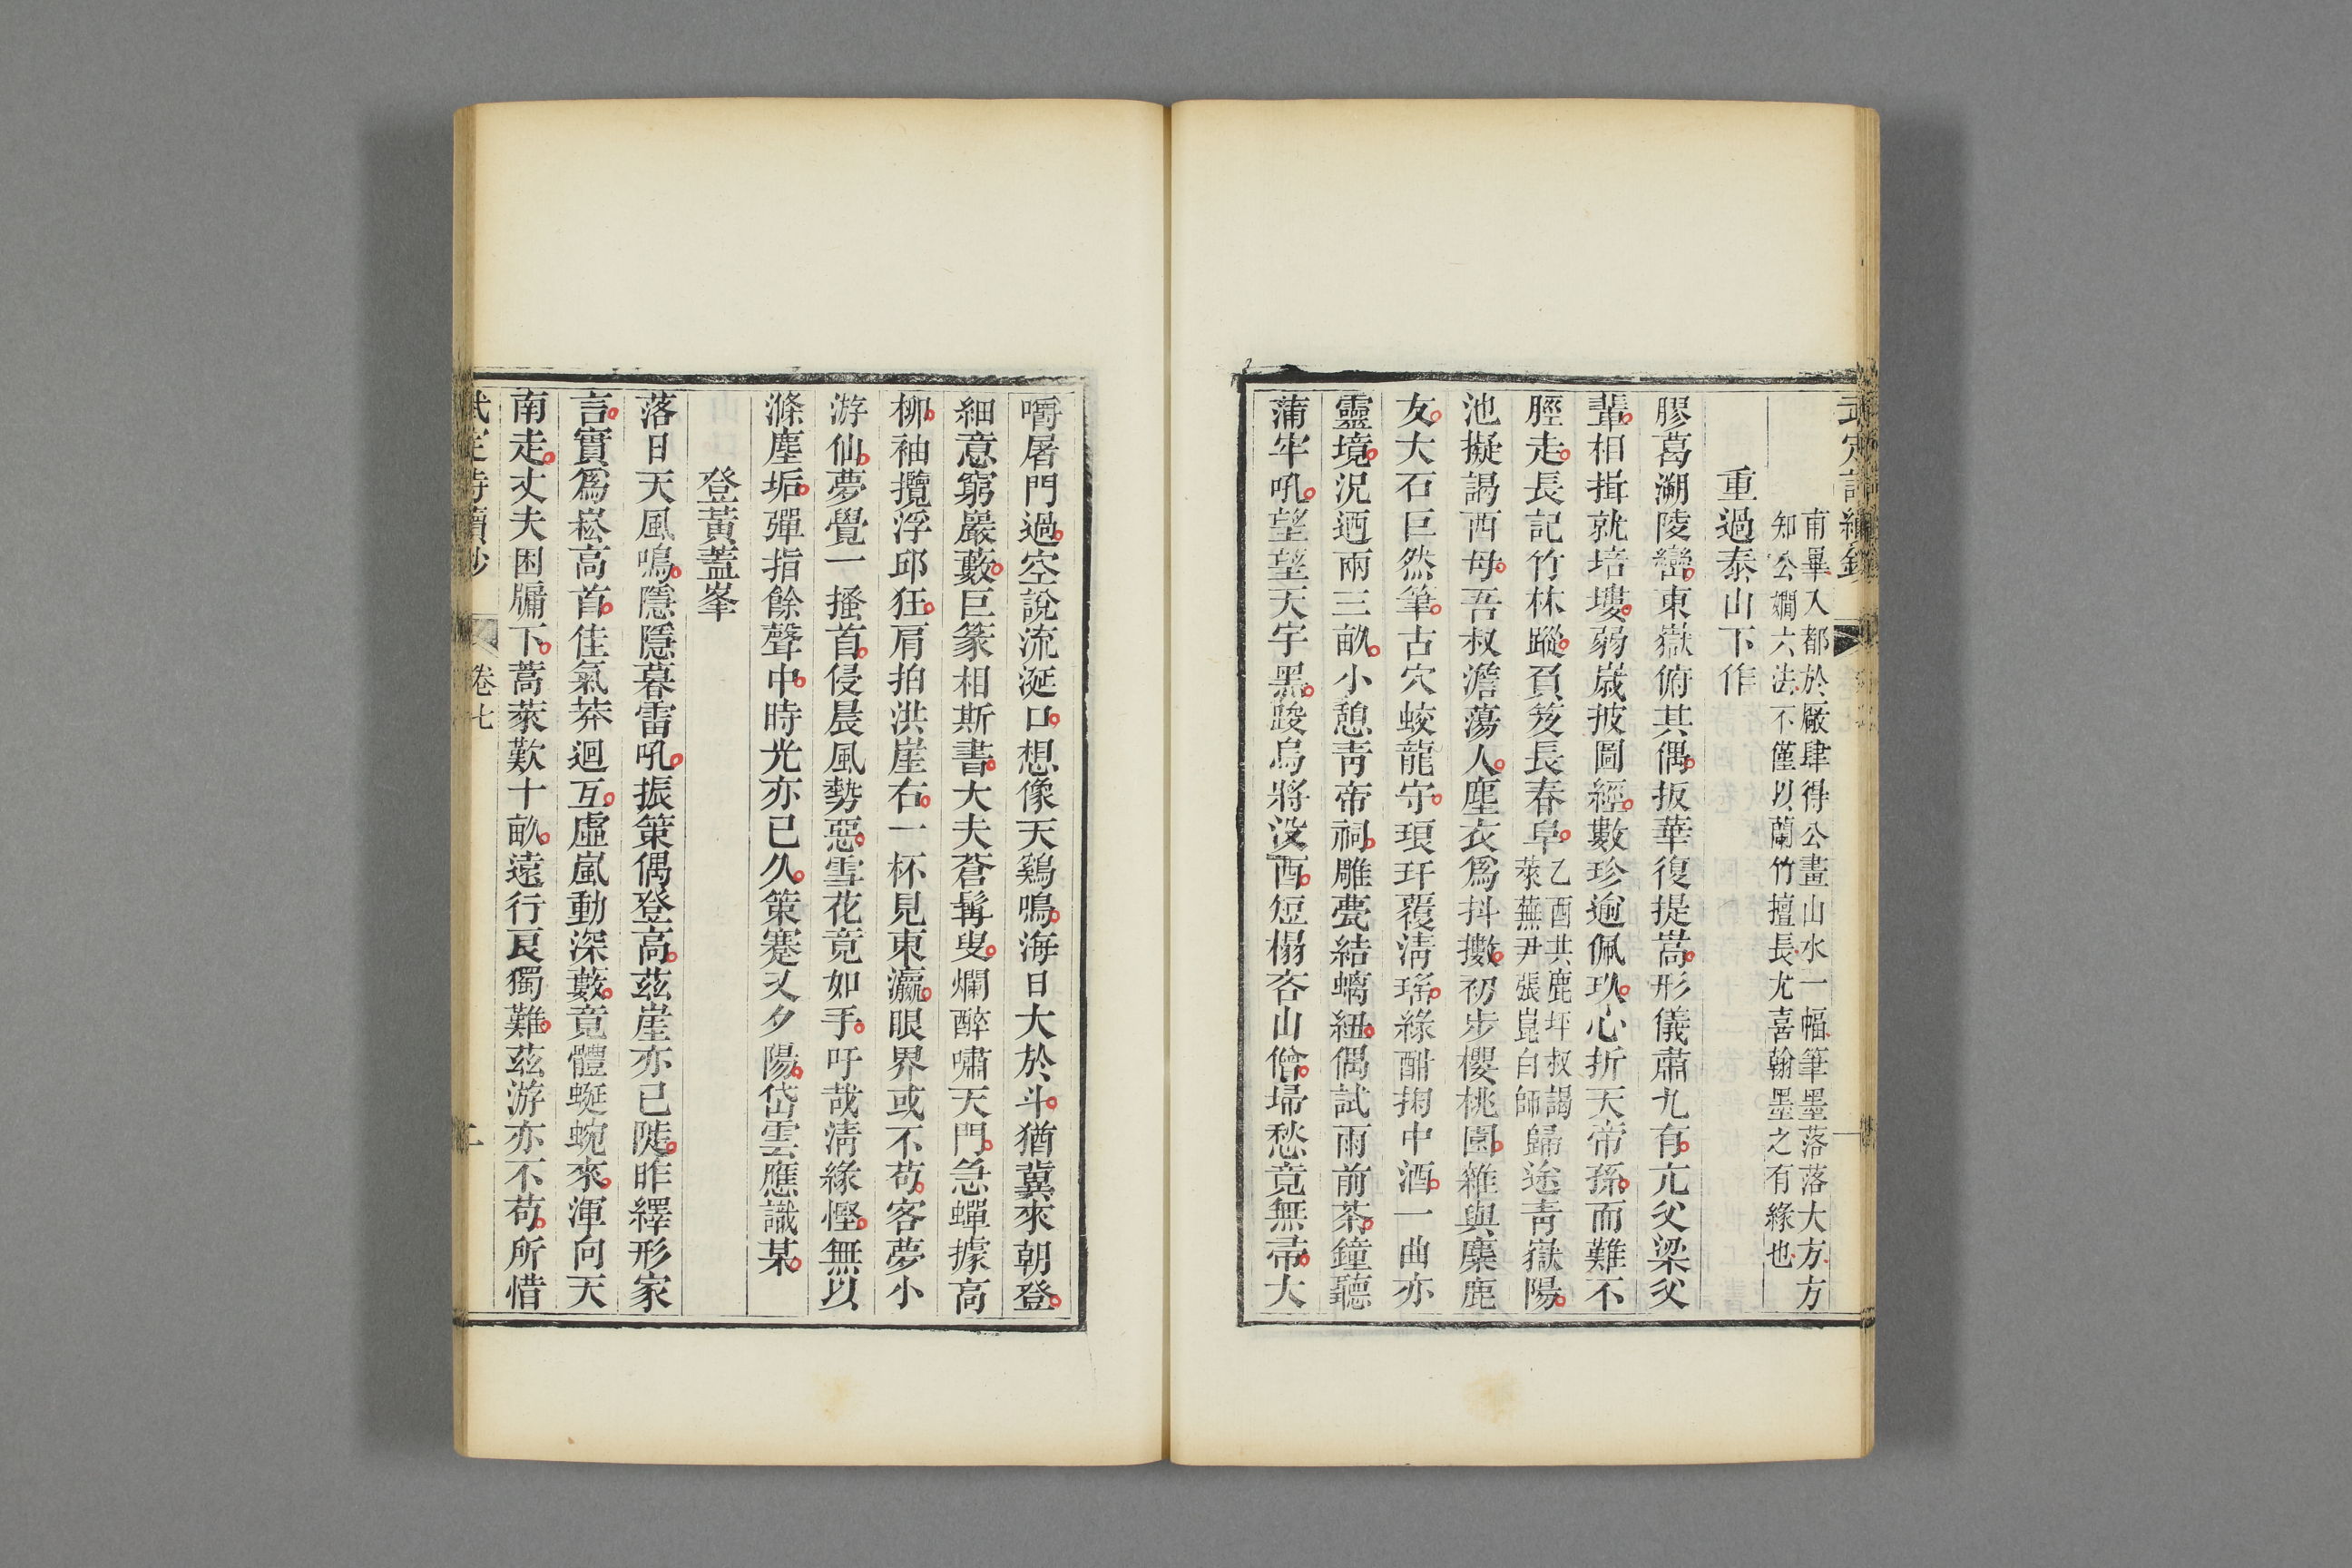 武定詩續鈔
甫畢入都於廠肆得公畫山水一幅筆墨落落大方方
知公嫺六法不僅以蘭竹擅長尤喜翰墨之有緣也
重過泰山下作
膠葛溯陵巒東嶽俯其偶扳華復提嵩形儀肅九有亢父梁父
輩相揖就培塿弱歲披圖經數珍逾佩玖心折天帝孫而難不
脛走長記竹林蹤負笈長春阜
乙酉共鹿坪叔謁
萊蕪尹張崑白師
歸途青嶽陽
池擬謁西母吾叔澹蕩人塵衣爲抖擻初步櫻桃園雜與麋鹿
友大石巨然筆古穴蛟龍守琅玕覆淸瑤緣酣掬中酒一曲亦
靈境況迺兩三畝小憩靑帝祠雕甍結螭紐偶試雨前茶鐘聽
蒲牢吼望望天宇黑踆烏將沒酉短榻吝山僧埽愁竟無帚大
嚼屠門過空說流涎口想像天鷄鳴海日大於斗猶冀來朝登
細意窮巖藪巨篆相斯書大夫蒼髯叟爛醉嘯天門急蟬據高
柳袖攬浮邱狂肩拍洪崖右一杯見東瀛眼界或不苟客夢小
游仙夢覺一搔首侵晨風勢惡雪花竟如手吁哉淸緣慳無以
滌塵垢彈指餘聲中時光亦已久策蹇又夕陽岱雲應識某
登黃蓋峯
落日天風鳴隱隱暮雷吼振策偶登高茲崖亦已陡昨繹形家
言實爲崧高首佳氣莽迴互虛嵐動深藪竟體蜒蜿來渾向天
南走丈夫困牖下蒿萊歎十畝遠行良獨難茲游亦不苟所惜
武定詩續鈔
卷七
二